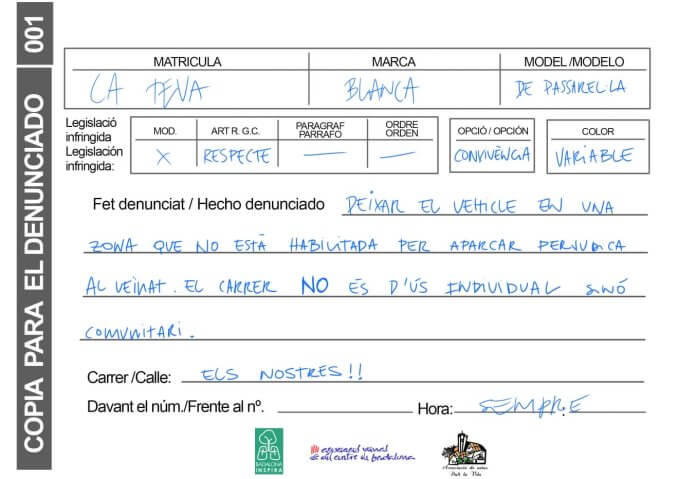 COPIA PARA EL DENUNCIADO 001
MATRICULA MARCA MODEL /MODELO
LA TEVA BLANCA DE PASSAREL·LA
Legislació infringida
Legislación infringida:
MOD. ART R. G.C. PARAGRAF PARRAFO ORDRE ORDEN OPCIÓ / OPCIÓN COLOR
X RESPECTE — — CONVIVÈNCIA VARIABLE
Fet denunciat / Hecho denunciado DEIXAR EL VEHICLE EN UNA
ZONA QUE NO ESTÀ HABILITADA PER APARCAR PERJUDICA
AL VEINAT. EL CARRER NO ÉS D'ÚS INDIVIDUAL SINÓ
COMUNITARI.
Carrer /Calle: ELS NOSTRES!!
Davant el núm./Frente al nº. Hora: SEMPRE
BADALONA
INSPIRA